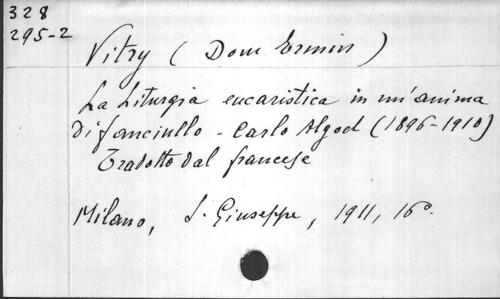 328
295-2
Vitry (Dom Ermin)
La Liturgia eucaristica in un'anima
di fanciullo - Carlo Algoet (1896-1910)
Tradotto dal francese
Milano, S. Giuseppe, 1911, 16°.